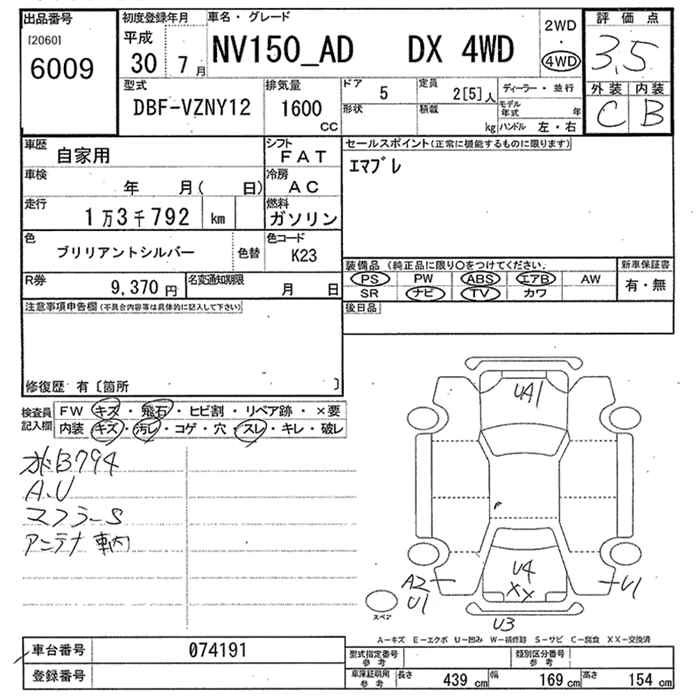 出品番号
[2060]
6009
初度登録年月
平成
30 7月
車名・グレード
NV150_AD DX 4WD
2WD
・
4WD
評価点
3.5
外装 内装
C B
型式
DBF-VZNY12
排気量
1600
cc
ドア 5
形状
定員 2[5]人
積載 kg
ディーラー・並行
モデル年式 年
ハンドル 左・右
車歴 自家用
シフト FAT
車検 年 月( 日)
冷房 AC
走行 1万3千792 km
燃料 ガソリン
色 ブリリアントシルバー 色替
色コード K23
R券 9,370円
名変通知期限 月 日
セールスポイント(正常に機能するものに限ります)
エマブレ
装備品 (純正品に限り○をつけてください)
PS PW ABS エアB AW
SR ナビ TV カワ
新車保証書
有・無
後日品
注意事項申告欄(不具合内容等は具体的に記入して下さい)
修復歴 有[箇所 ]
検査員記入欄
FW キズ・飛石・ヒビ割・リペア跡・×要
内装 キズ・汚レ・コゲ・穴・スレ・キレ・破レ
B794
A.U
マフラーS
アンテナ 車内
UA1
U4
XX
A2
U1
U1
U3
スペア
A-キズ E-エクボ U-凹み W-補修跡 S-サビ C-腐食 XX-交換済
車台番号 074191
登録番号
型式指定番号
参考
類別区分番号
参考
車庫証明用
参考
長さ 439 cm 幅 169 cm 高さ 154 cm